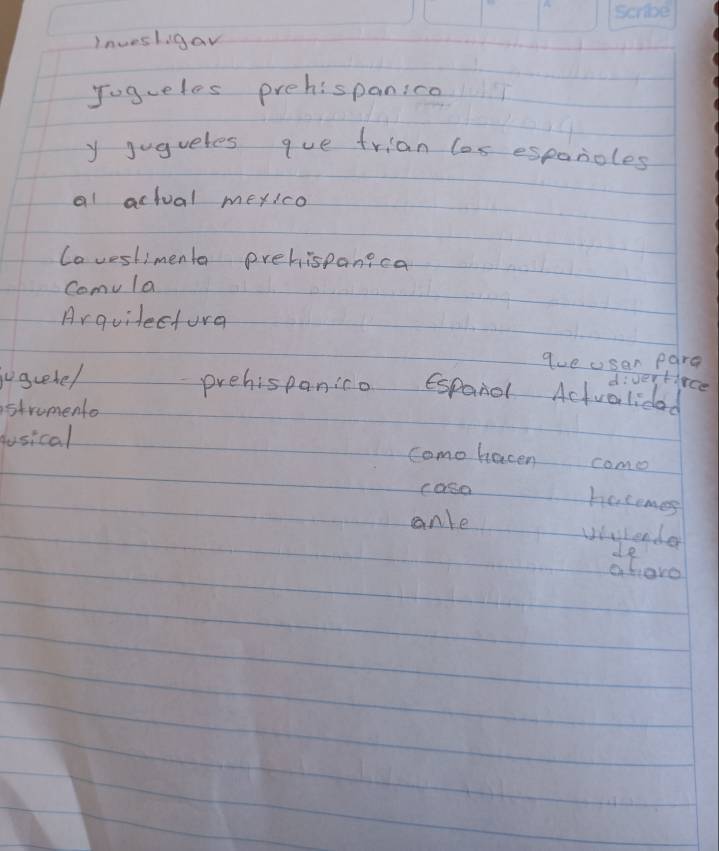 Scribe
investigar
Jugueles prehispanico
y juguetes que trian los españoles
al actual mexico
la vestimenta prehispanica
comula
Arquitectura
que usan para
divertirce
juguete/ prehispanico Español Actualidad
instrumento
musical
como hacen como
casa hacemos
ante vivienda
de
ahora